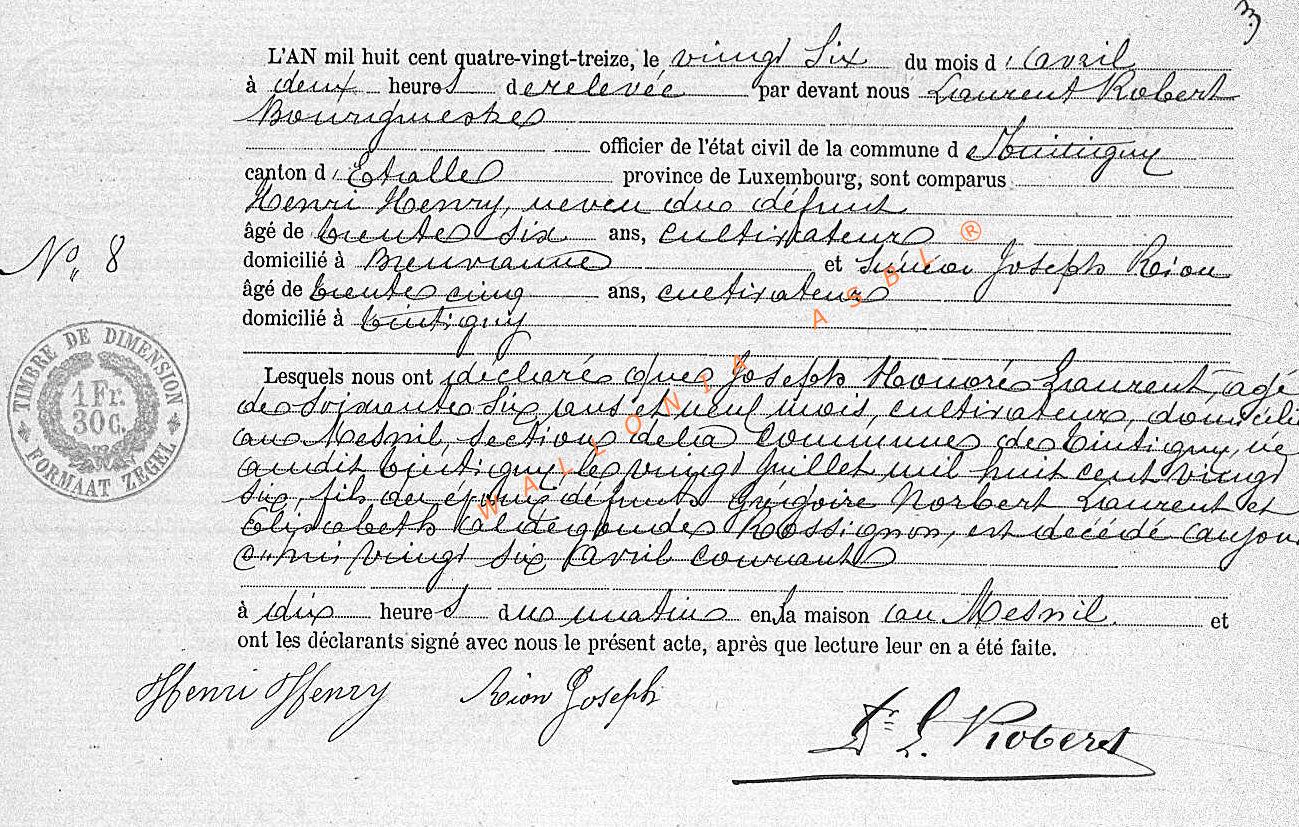 3
L'AN mil huit cent quatre-vingt-treize, le vingt six du mois d'avril
à deux heures de relevée par devant nous Laurent Robert
Bourgmestre
officier de l'état civil de la commune de Tintigny
canton d'Etalle province de Luxembourg, sont comparus
Henri Henry, neveu du défunt
âgé de trente six ans, cultivateur
domicilié à Breuvanne et Siméon Joseph Rion
âgé de trente cinq ans, cultivateur
domicilié à Tintigny
No 8
TIMBRE DE DIMENSION
1 Fr.
30 c.
FORMAAT ZEGEL
Lesquels nous ont déclaré que Joseph Honoré Laurent, agé
de soixante six ans et neuf mois, cultivateur, domicilié
au Mesnil section de la commune de Tintigny, né
audit Tintigny, le vingt Juillet mil huit cent vingt
six, fils des époux défunts Grégoire Norbert Laurent et
Elisabeth Aldegonde Rossignon, est décédé aujour
d'hui vingt six avril courant
à dix heures du matin en sa maison au Mesnil et
ont les déclarants signé avec nous le présent acte, après que lecture leur en a été faite.
Henri Henry Rion Joseph
Dr L. Robert
WALLONIA ASBL ®